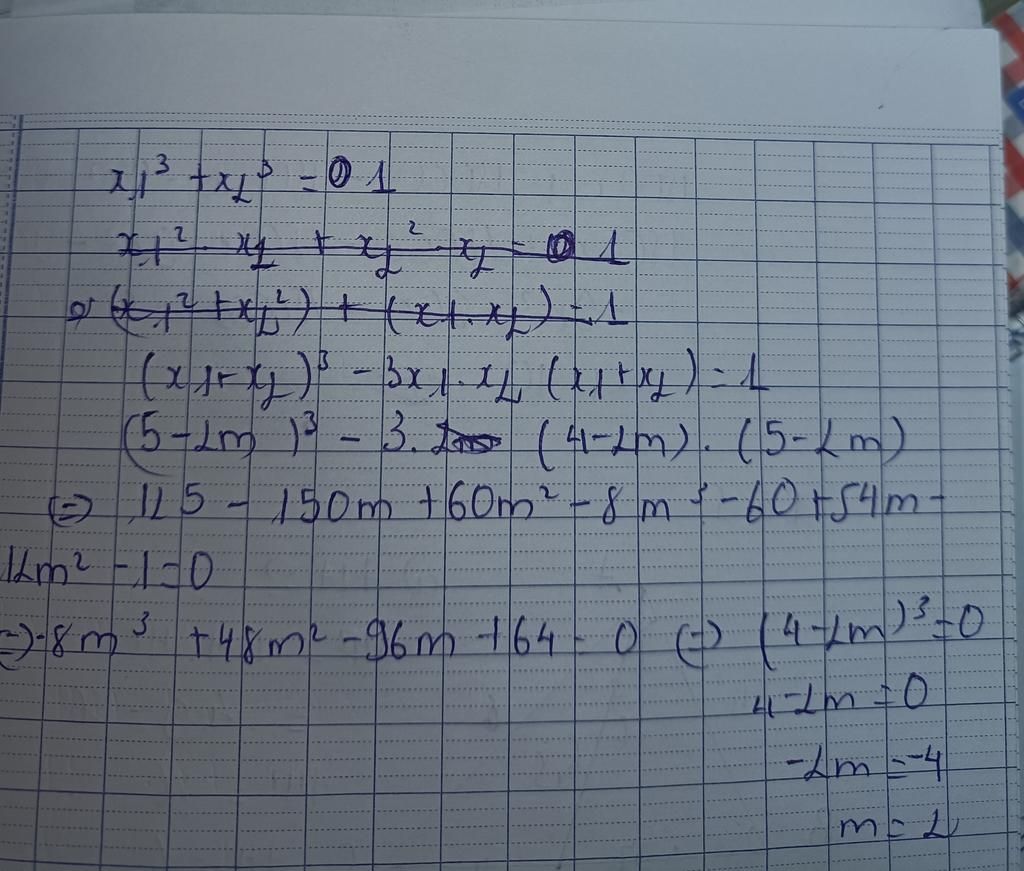 x₁³ + x₂³ = 0 1
x₁² . x₂ + x₂² . x₂ = 0 1
⇒ (x₁² + x₂²) + (x₁ . x₂) = 1
(x₁ + x₂)³ - 3x₁ . x₂ (x₁ + x₂) = 1
(5 - 2m)³ - 3. (4 - 2m) . (5 - 2m)
⇔ 125 - 150m + 60m² - 8m³ - 60 + 54m -
12m² - 1 = 0
⇔ -8m³ + 48m² - 96m + 64 = 0 ⇔ (4 - 2m)³ = 0
4 - 2m = 0
-2m = -4
m = 2